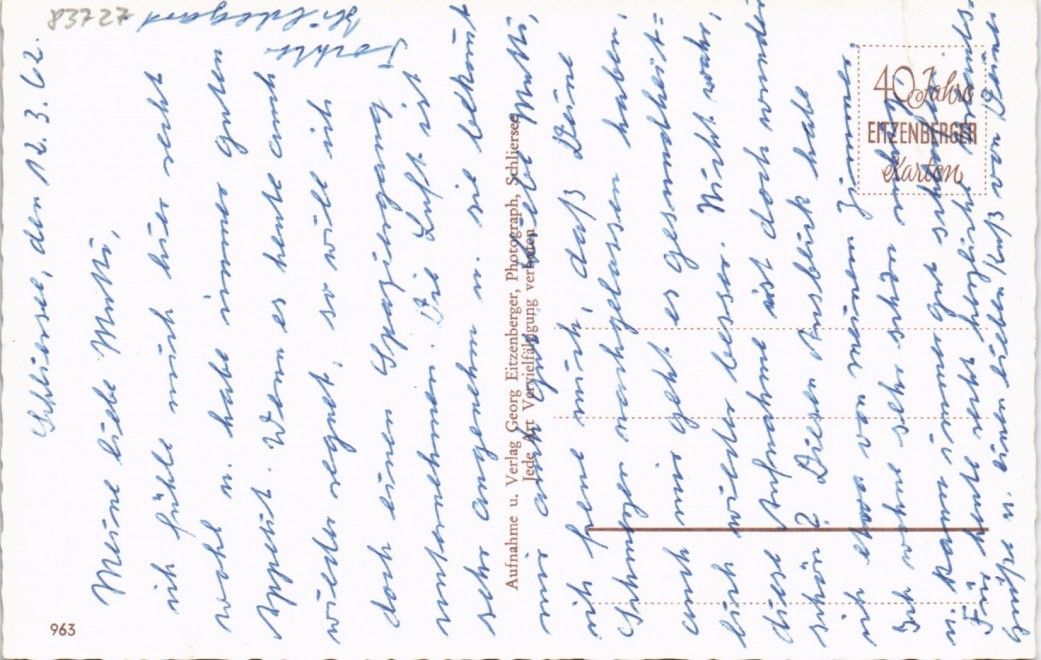 Schliersee, den 12.3.62.
Meine liebe Mutti,
ich fühle mich hier recht
wohl u. habe immer guten
Appetit. Wenn es heute auch
wieder regnet, so will ich
doch einen Spaziergang
unternehmen. Die Luft ist
sehr angenehm u. sie bekommt
mir auch gut. Liebe Mutti,
ich freue mich, daß Deine
Schmerzen nachgelassen haben,
auch mir geht es gesundheit=
lich wieder besser. Nicht wahr,
diese Aufnahme ist doch wunder
schön? Diesen Ausblick habe
ich etwa von meinem Zimmer.
Ich wohne sehr schön ruhig
u. kann immer gut schlafen.
Für heute recht herzliche
Grüße u. einen lieben Kuß von Deiner
Tochter
Hildegard
83727
Aufnahme u. Verlag Georg Eitzenberger, Photograph, Schliersee
Jede Art Vervielfältigung verboten
40 Jahre
EITZENBERGER
Karten
963